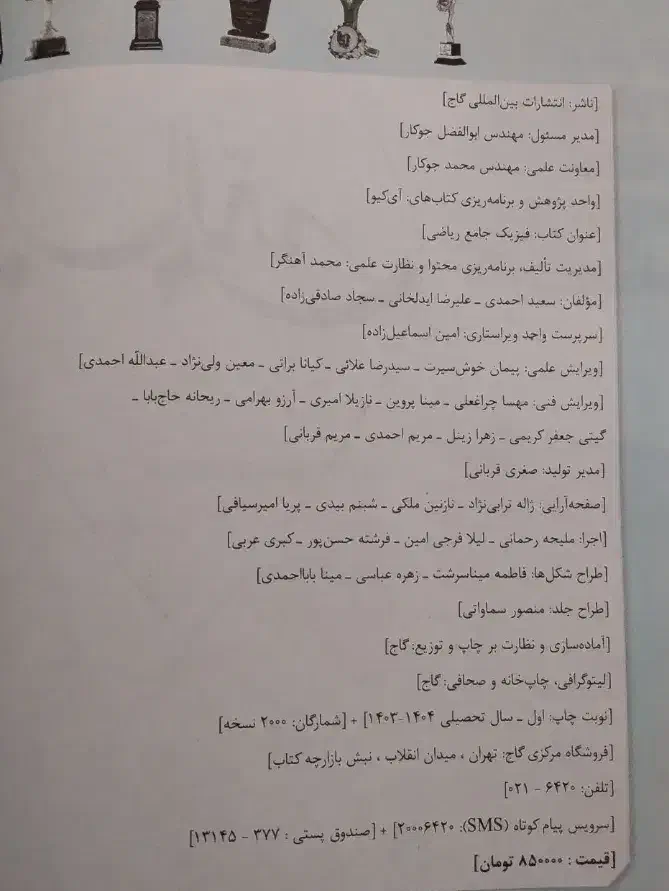 [ناشر: انتشارات بین‌المللی گاج]
[مدیر مسئول: مهندس ابوالفضل جوکار]
[معاونت علمی: مهندس محمد جوکار]
[واحد پژوهش و برنامه‌ریزی کتاب‌های: آی‌کیو]
[عنوان کتاب: فیزیک جامع ریاضی]
[مدیریت تألیف، برنامه‌ریزی محتوا و نظارت علمی: محمد آهنگر]
[مؤلفان: سعید احمدی ـ علیرضا ایدلخانی ـ سجاد صادقی‌زاده]
[سرپرست واحد ویراستاری: امین اسماعیل‌زاده]
[ویرایش علمی: پیمان خوش‌سیرت ـ سیدرضا علائی ـ کیانا براتی ـ معین ولی‌نژاد ـ عبداللّه احمدی]
[ویرایش فنی: مهسا چراغعلی ـ مینا پروین ـ نازیلا امیری ـ آرزو بهرامی ـ ریحانه حاج‌بابا ـ
گیتی جعفر کریمی ـ زهرا زینل ـ مریم احمدی ـ مریم قربانی]
[مدیر تولید: صغری قربانی]
[صفحه‌آرایی: ژاله ترابی‌نژاد ـ نازنین ملکی ـ شبنم بیدی ـ پریا امیرسیافی]
[اجرا: ملیحه رحمانی ـ لیلا فرجی امین ـ فرشته حسن‌پور ـ کبری عربی]
[طراح شکل‌ها: فاطمه میناسرشت ـ زهره عباسی ـ مینا بابااحمدی]
[طراح جلد: منصور سماواتی]
[آماده‌سازی و نظارت بر چاپ و توزیع: گاج]
[لیتوگرافی، چاپ‌خانه و صحافی: گاج]
[نوبت چاپ: اول ـ سال تحصیلی ۱۴۰۴-۱۴۰۳] + [شمارگان: ۲۰۰۰ نسخه]
[فروشگاه مرکزی گاج: تهران ، میدان انقلاب ، نبش بازارچه کتاب]
[تلفن: ۶۴۲۰ - ۰۲۱]
[سرویس پیام کوتاه (SMS): ۲۰۰۰۶۴۲۰] + [صندوق پستی : ۳۷۷ - ۱۳۱۴۵]
[قیمت : ۸۵۰۰۰۰ تومان]